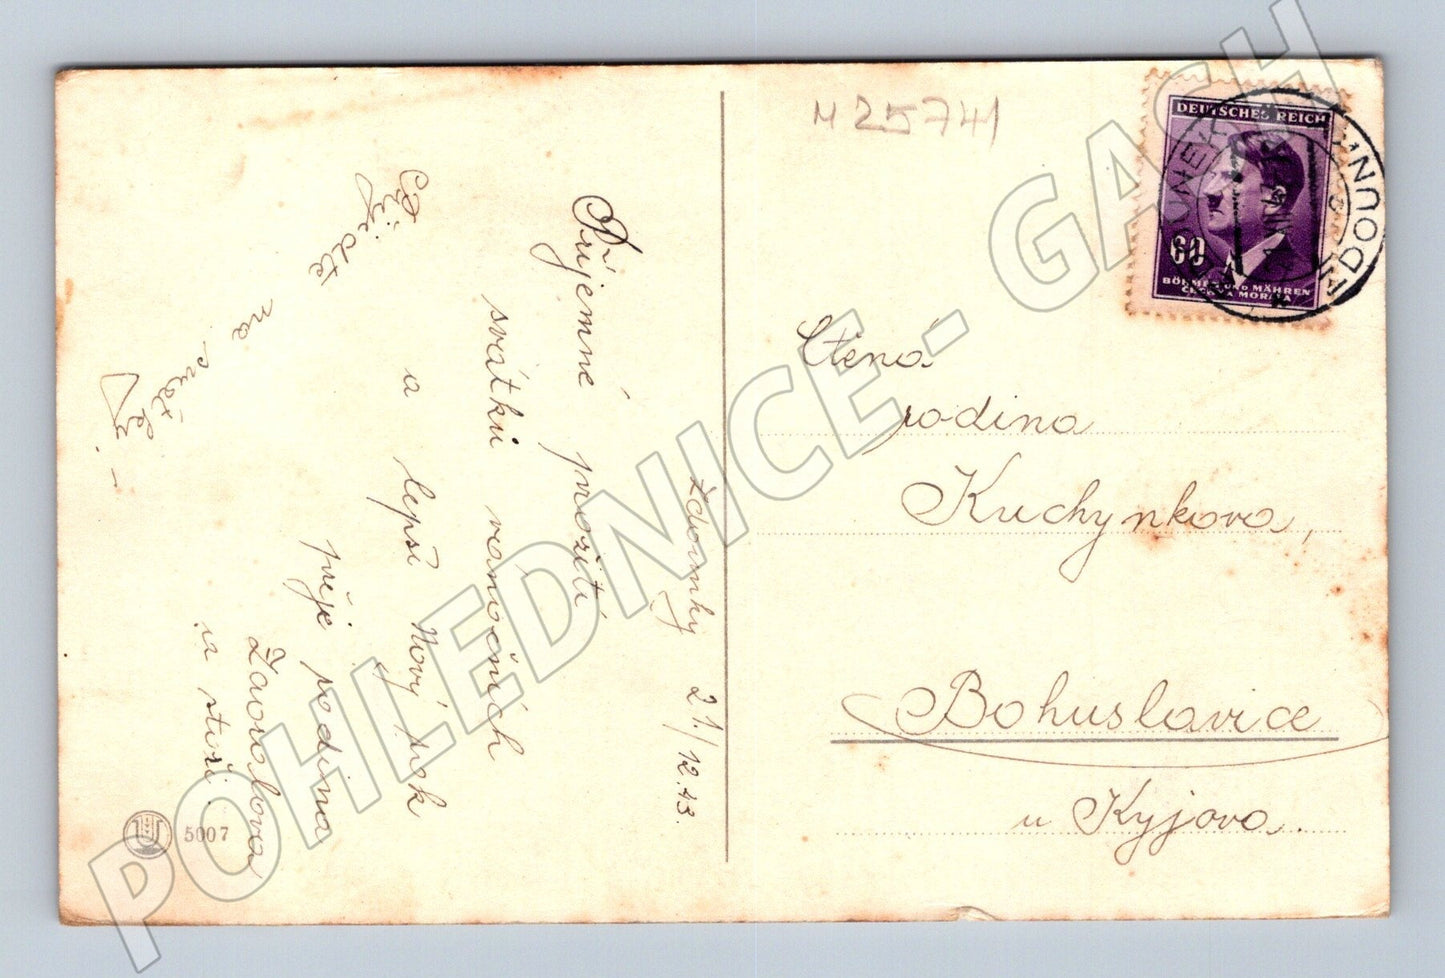 M 25741
DEUTSCHES REICH
60
BÖHMEN UND MÄHREN
ČECHY A MORAVA
Ctěná
rodina
Kuchynkova,
Bohuslavice
u Kyjova.
Ždounky 21/12.43.
Příjemné prožití
svátků vanočních
a lepší Nový rok
přeje rodina
Zavoralova
a stoři.
Přijedte
na svátky.
5007
POHLEDNICE - GASH